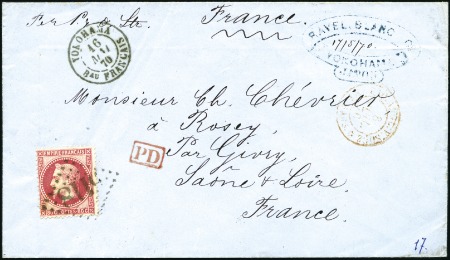 Per P. & St.
France.
YOKOHAMA
16
MAI
70
BAU FRANCAIS
RAVEL, BLANC & Co
17/5/70
YOKOHAMA
(JAPON)
Monsieur Ch. Chévrier
à Rosey,
PD
Par Givry,
Saône & Loire,
France.
EMPIRE FRANC
17.